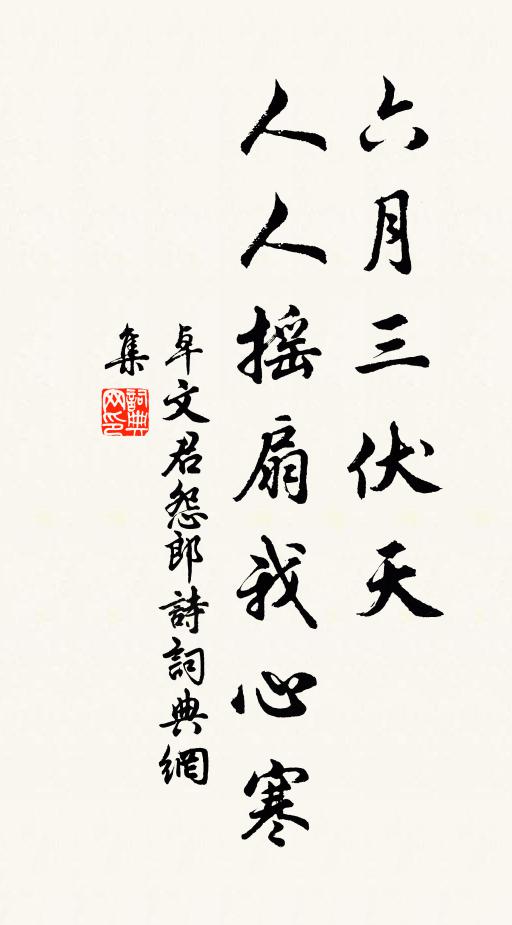 六月三伏天
人人摇扇我心寒
卓文君怨郎詩詞典網
集
詞典网印